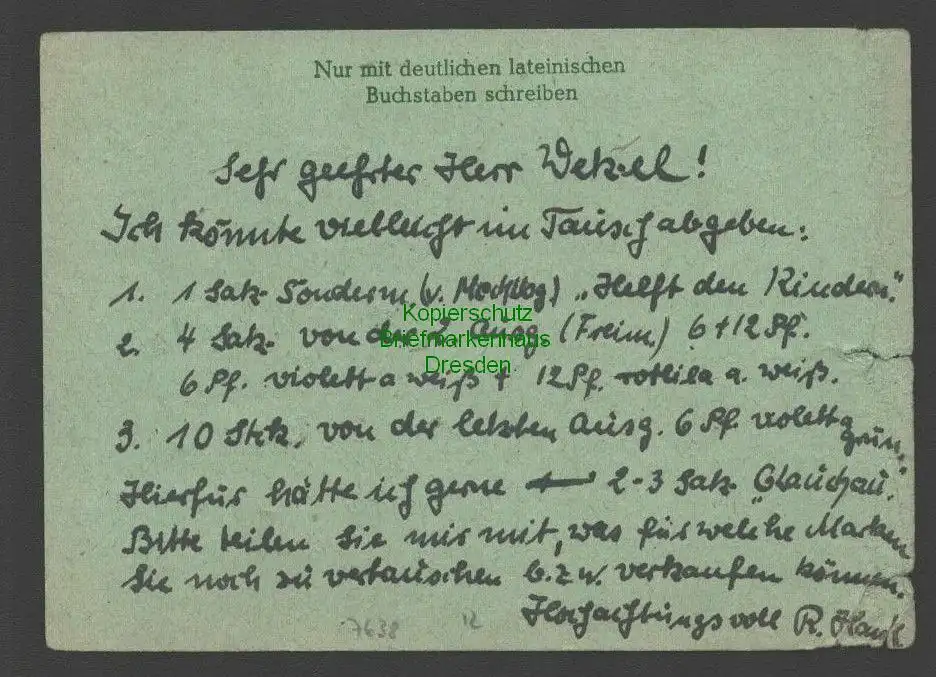 Nur mit deutlichen lateinischen
Buchstaben schreiben
Sehr geehrter Herr Wetzel!
Ich könnte vielleicht im Tausch abgeben:
1. 1 Satz Sonderm. (v. Mecklbg) „Helft den Kindern."
2. 4 Satz von der 2. Ausg (Freim.) 6+12 Pf.
6 Pf. violett a weiß + 12 Pf. rotlila a. weiß.
3. 10 Stck. von der letzten Ausg. 6 Pf violett a grün.
Hierfür hätte ich gerne 2-3 Satz „Glauchau."
Bitte teilen Sie mir mit, was für welche Marken
Sie noch zu vertauschen b.z.w. verkaufen können.
Hochachtungsvoll R.
Kopierschutz
Briefmarkenhaus
Dresden
7638 12